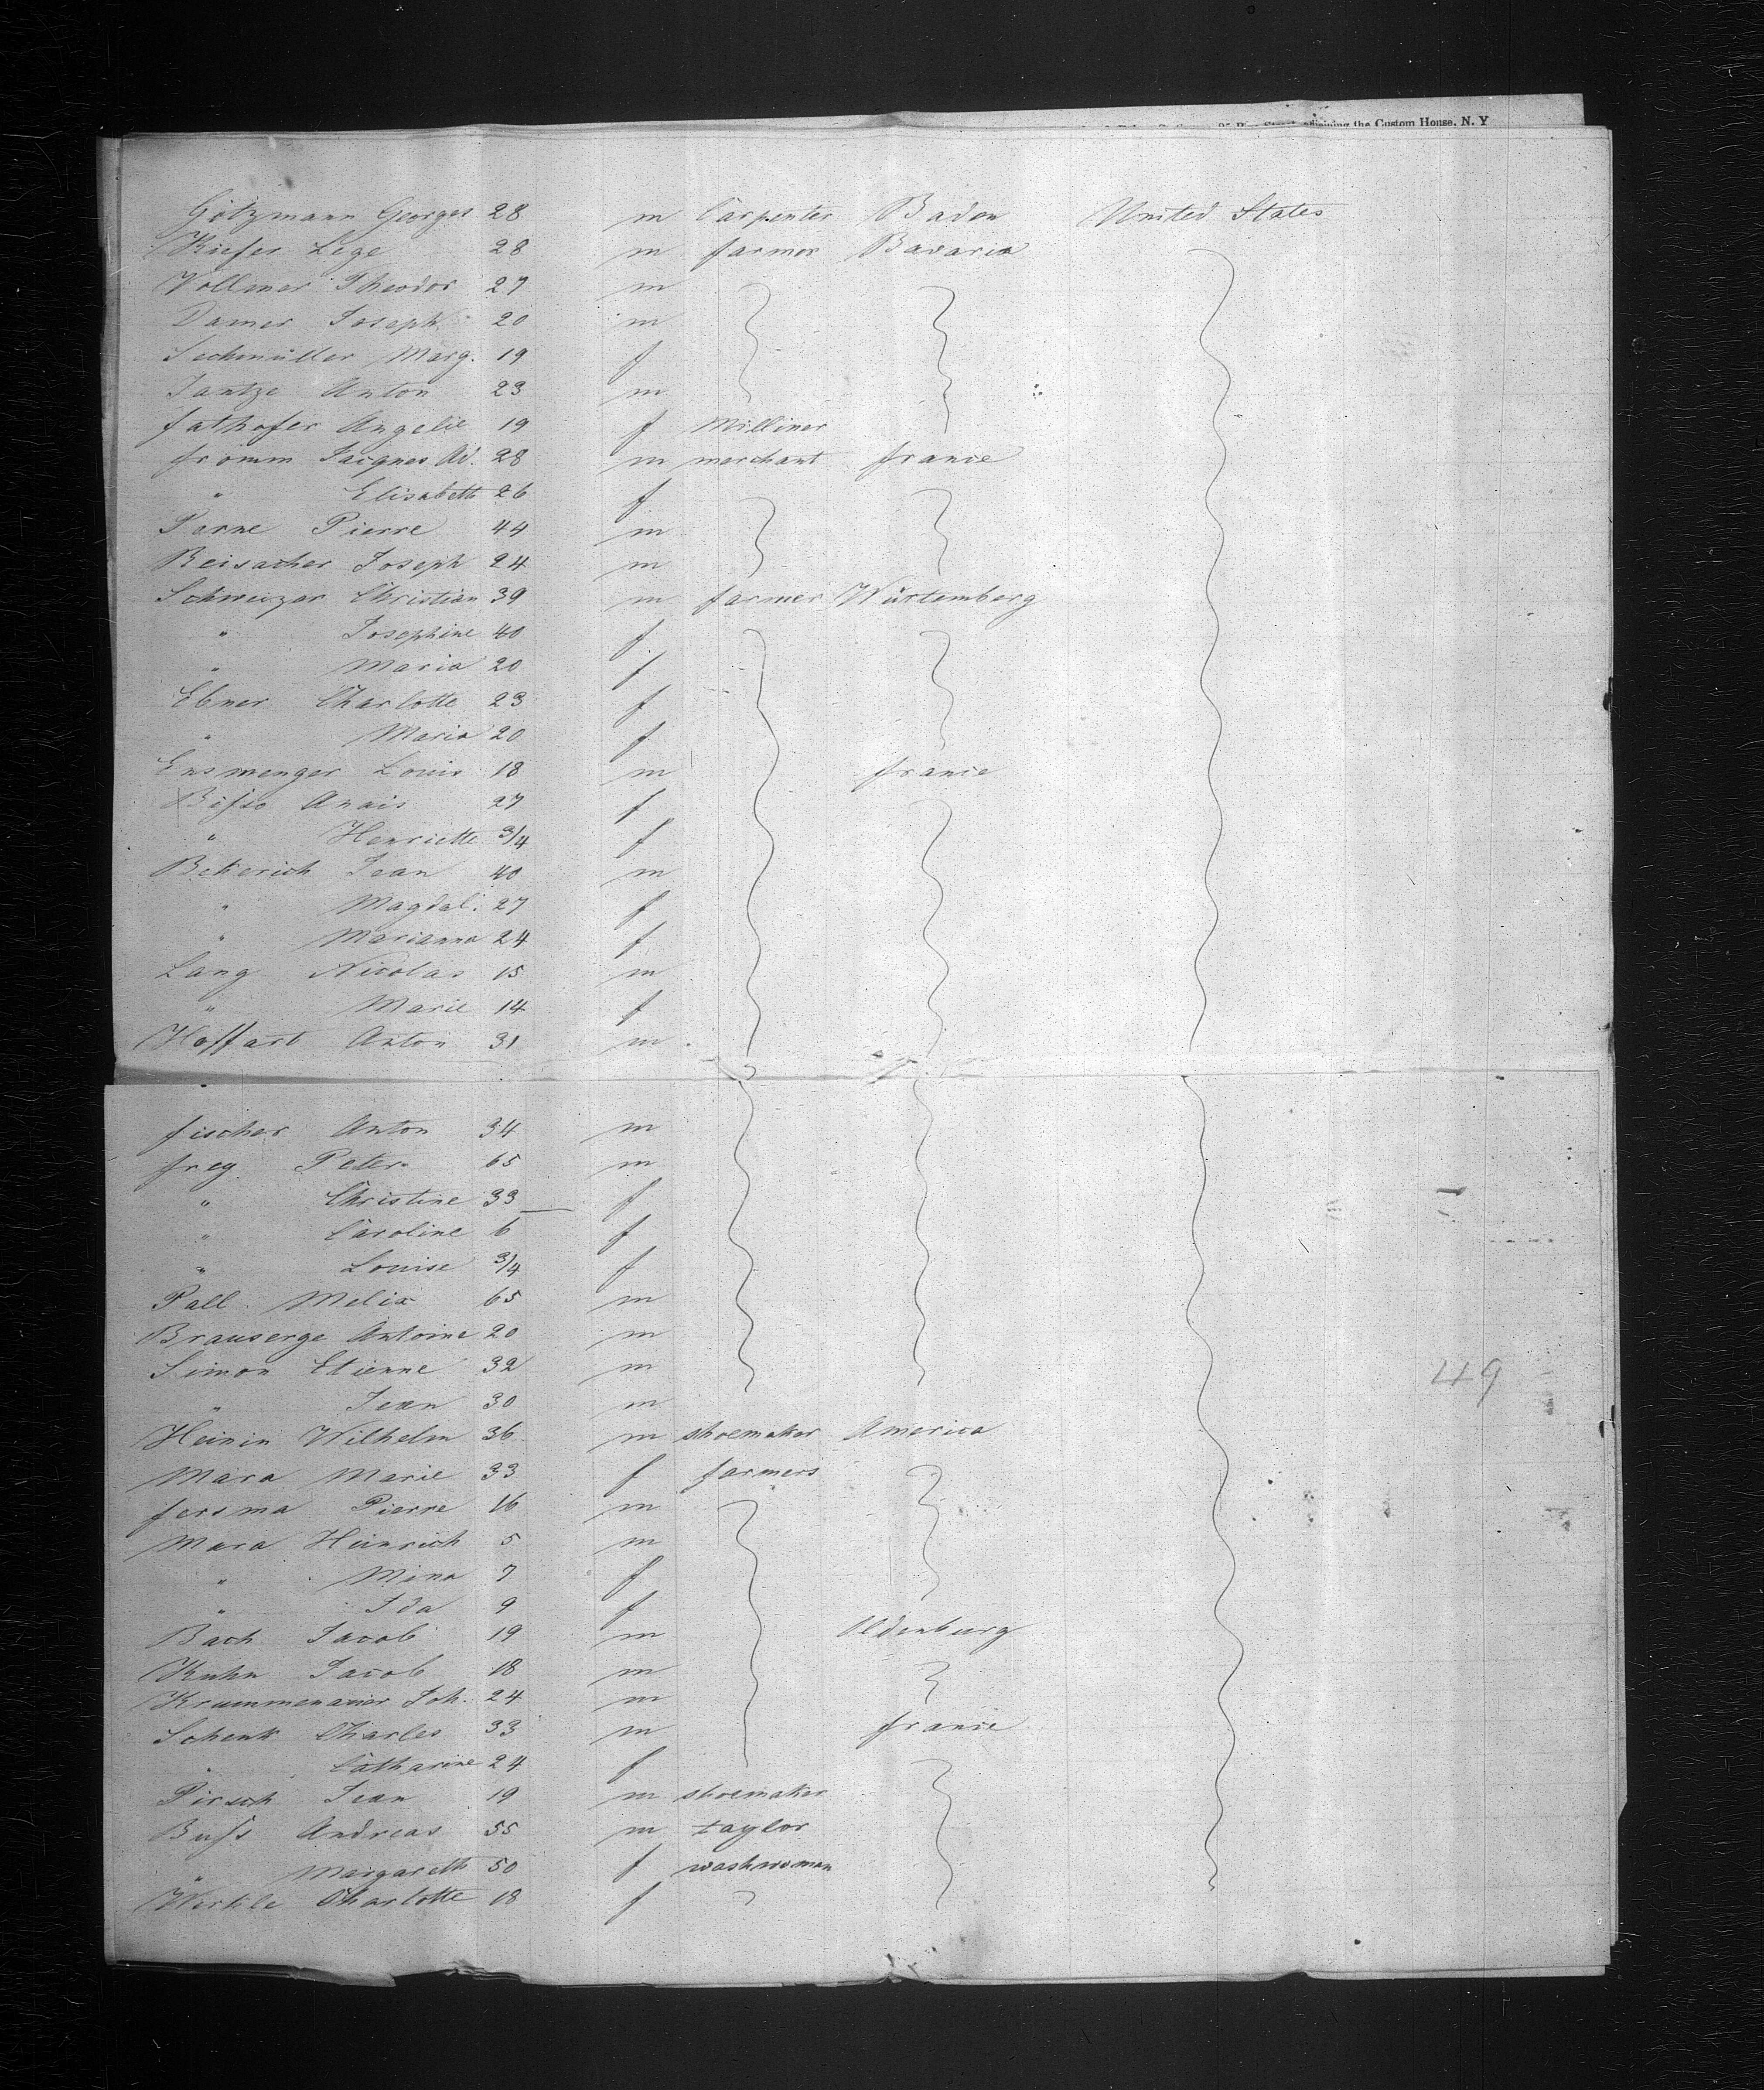 adjoining the Custom House, N. Y
Götzmann Georges 28 m Carpenter Baden United States
Kiefer Lege 28 m farmer Bavaria
Vollmer Theodor 27 m
Damer Joseph 20 m
Sechmüller Marg. 19 f
Jantze Anton 23 m
fathofer Angelie 19 f Milliner
fromm Jacques Ad. 28 m merchant france
" Elisabeth 26 f
Perne Pierre 44 m
Beisacher Joseph 24 m
Schweizer Christian 39 m farmer Würtemberg
" Josephine 40 f
" Maria 20 f
Ebner Charlotte 23 f
" Maria 20 f
Ensmenger Louis 18 m france
Anais 27 f
" Henriette 3/4 f
Bekerich Jean 40 m
" Magdal. 27 f
" Marianna 24 f
Lang Nicolas 15 m
" Marie 14 f
Hoffart Anton 31 m
fischer Anton 34 m
frey Peter 65 m
" Christine 33 f
" Caroline 6 f
" Louise 3/4 f
Pall Melix 65 m
Brauserge Antoine 20 m
Simon Etienne 32 m 49
" Jean 30 m
Heinin Wilhelm 36 m shoemaker America
Mara Marie 33 f farmers
fersma Pierre 16 m
Mara Heinrich 5 m
" Mina 7 f
" Ida 9 f
Bach Jacob 19 m Oldenburg
Kuhn Jacob 18 m
Krummenacier Joh. 24 m
Schenk Charles 33 m france
" Catharine 24 f
Pirsch Jean 19 m shoemaker
Buſs Andreas 55 m taylor
" Margareth 50 f washwoman
Charlotte 18 f